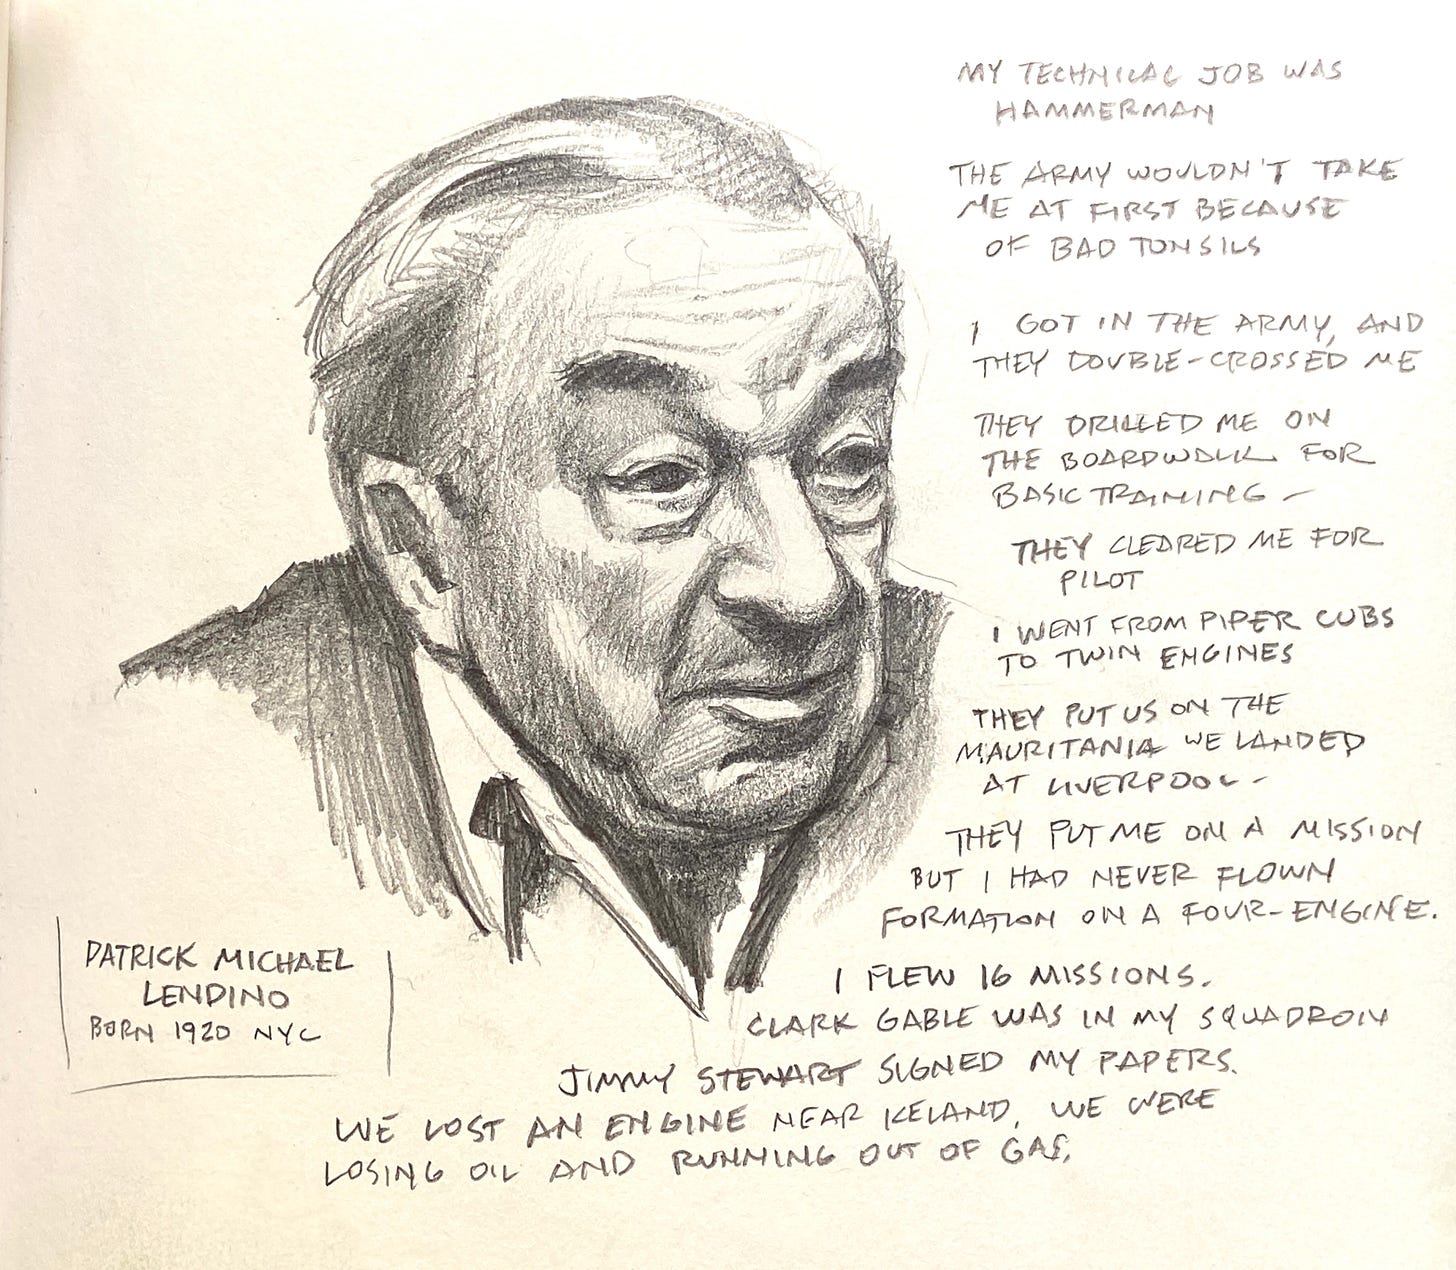 MY TECHNICAL JOB WAS
HAMMERMAN
THE ARMY WOULDN'T TAKE
ME AT FIRST BECAUSE
OF BAD TONSILS
I GOT IN THE ARMY, AND
THEY DOUBLE-CROSSED ME
THEY DRILLED ME ON
THE BOARDWALK FOR
BASIC TRAINING -
THEY CLEARED ME FOR
PILOT
I WENT FROM PIPER CUBS
TO TWIN ENGINES
THEY PUT US ON THE
MAURITANIA WE LANDED
AT LIVERPOOL -
THEY PUT ME ON A MISSION
BUT I HAD NEVER FLOWN
FORMATION ON A FOUR-ENGINE.
I FLEW 16 MISSIONS.
CLARK GABLE WAS IN MY SQUADRON
JIMMY STEWART SIGNED MY PAPERS.
WE LOST AN ENGINE NEAR ICELAND, WE WERE
LOSING OIL AND RUNNING OUT OF GAS,
PATRICK MICHAEL
LENDINO
BORN 1920 NYC